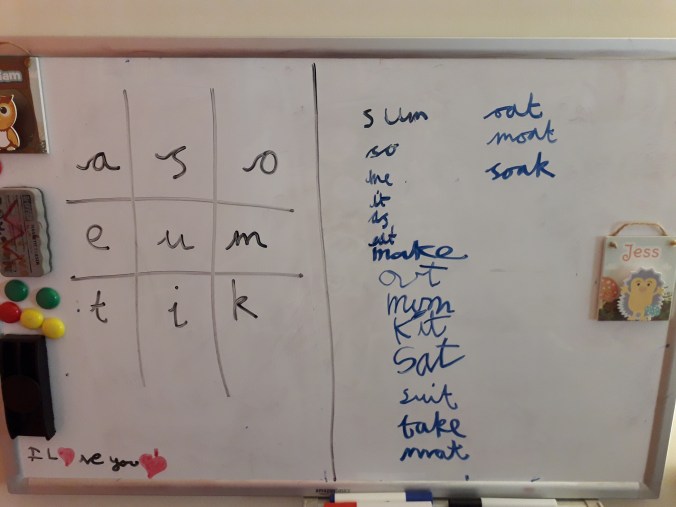 a s o
e u m
t i k
I L ve you
sum
so
me
it
as
at
make
out
mom
Kit
Sat
suit
take
mat
oat
moat
soak
Jess